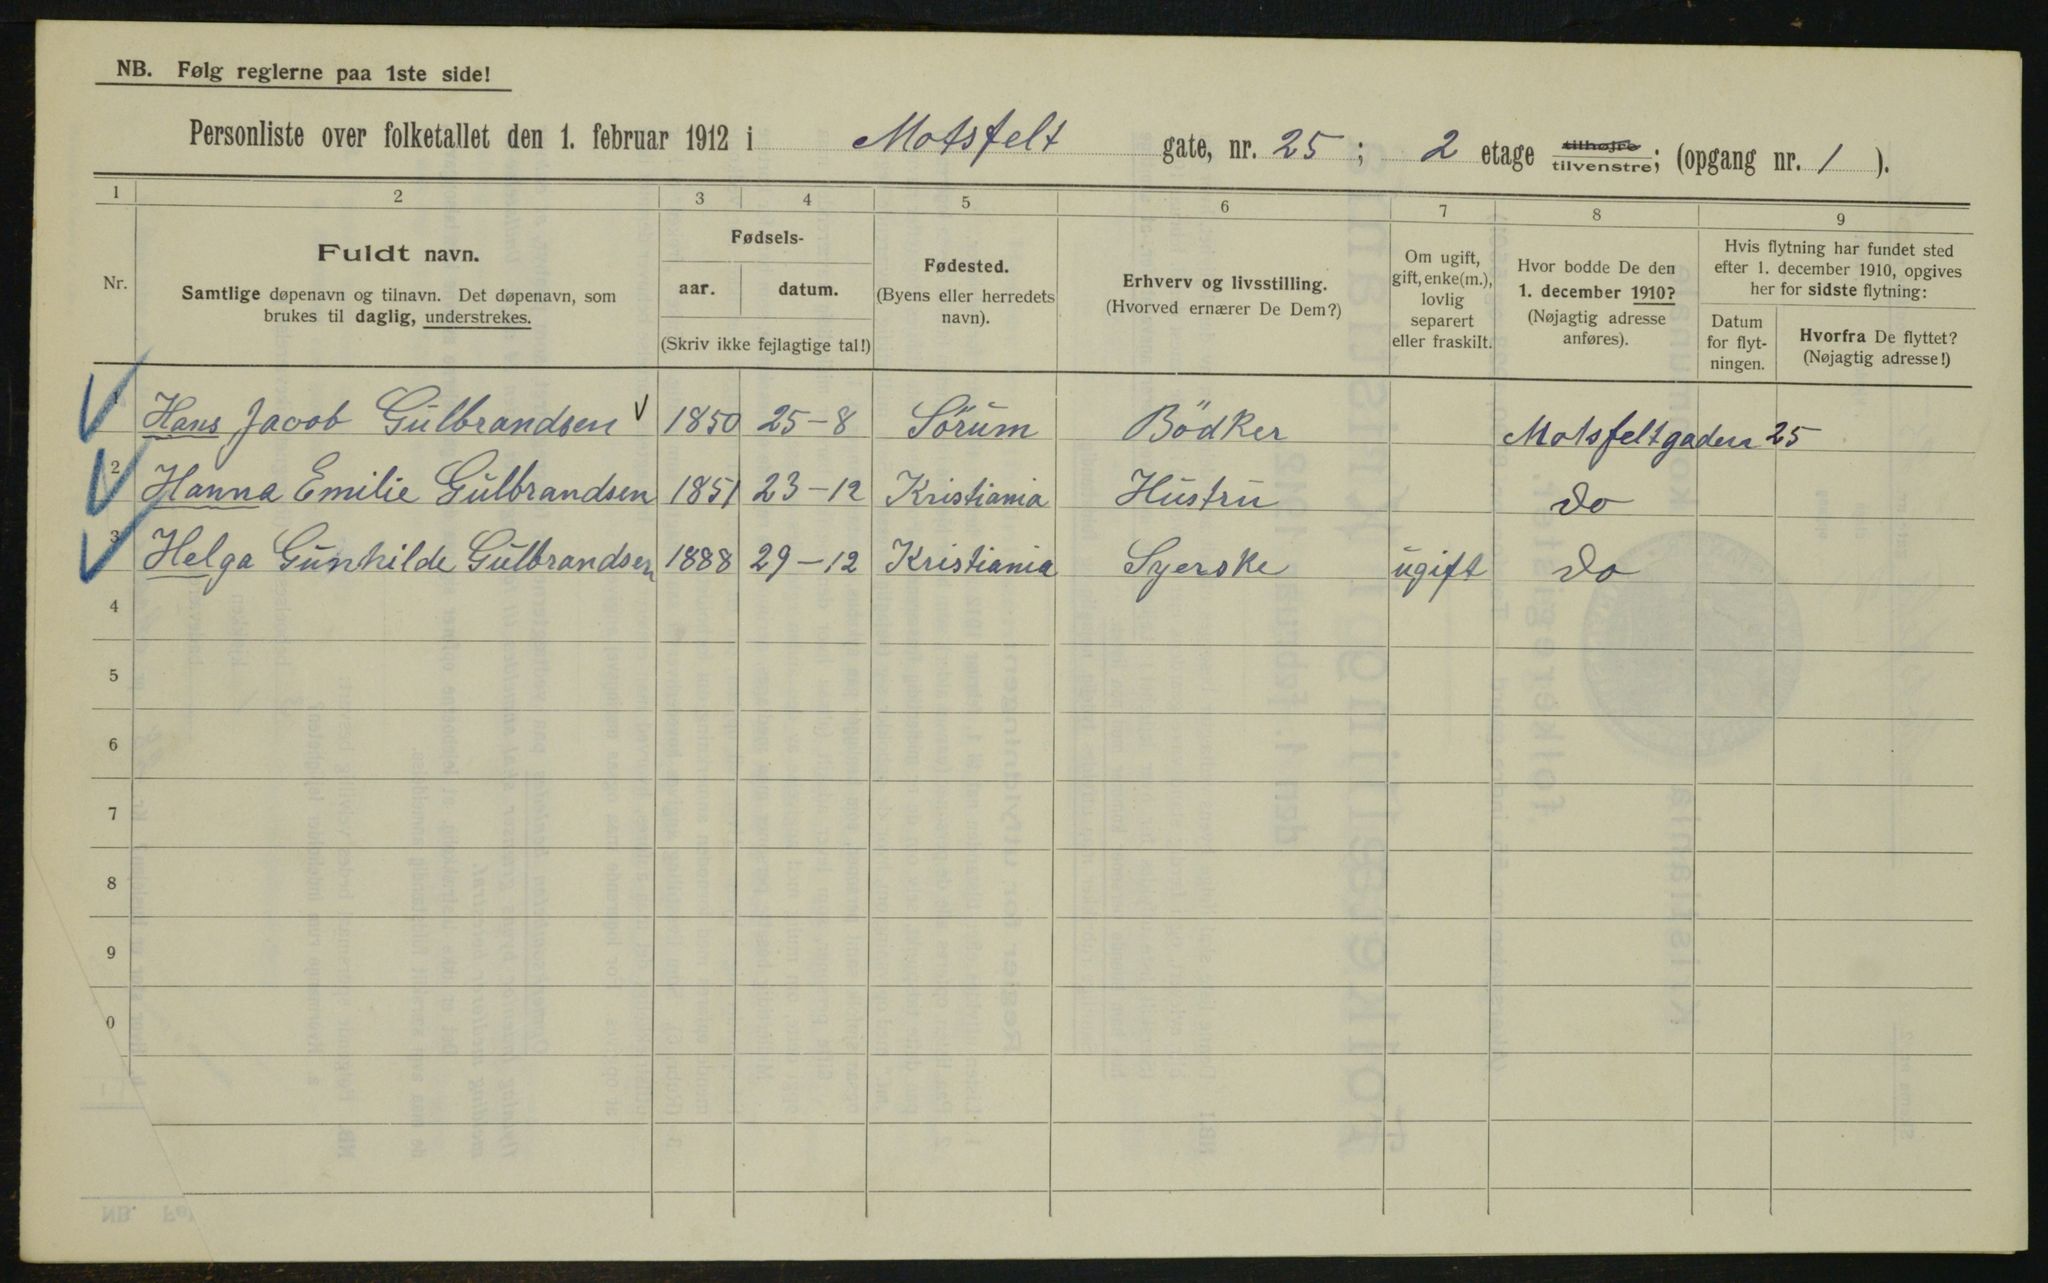 NB. Følg reglerne paa 1ste side!
Personliste over folketallet den 1. februar 1912 i Motsfelt gate, nr. 25; 2 etage tilhøjre tilvenstre; (opgang nr. 1).
1 2 3 4 5 6 7 8 9
Nr.
Fuldt navn.
Samtlige døpenavn og tilnavn. Det døpenavn, som
brukes til daglig, understrekes.
Fødsels-
aar. datum.
(Skriv ikke fejlagtige tal!)
Fødested.
(Byens eller herredets
navn).
Erhverv og livsstilling.
(Hvorved ernærer De Dem?)
Om ugift,
gift, enke(m.),
lovlig
separert
eller fraskilt.
Hvor bodde De den
1. december 1910?
(Nøjagtig adresse
anføres).
Hvis flytning har fundet sted
efter 1. december 1910, opgives
her for sidste flytning:
Datum
for flyt-
ningen.
Hvorfra De flyttet?
(Nøjagtig adresse!)
1 Hans Jacob Gulbrandsen 1850 25-8 Sörum Bödker Motsfeltgaden 25
2 Hanna Emilie Gulbrandsen 1851 23-12 Kristiania Hustru do
3 Helga Gunhilde Gulbrandsen 1888 29-12 Kristiania Syerske ugift do
4
5
6
7
8
9
0